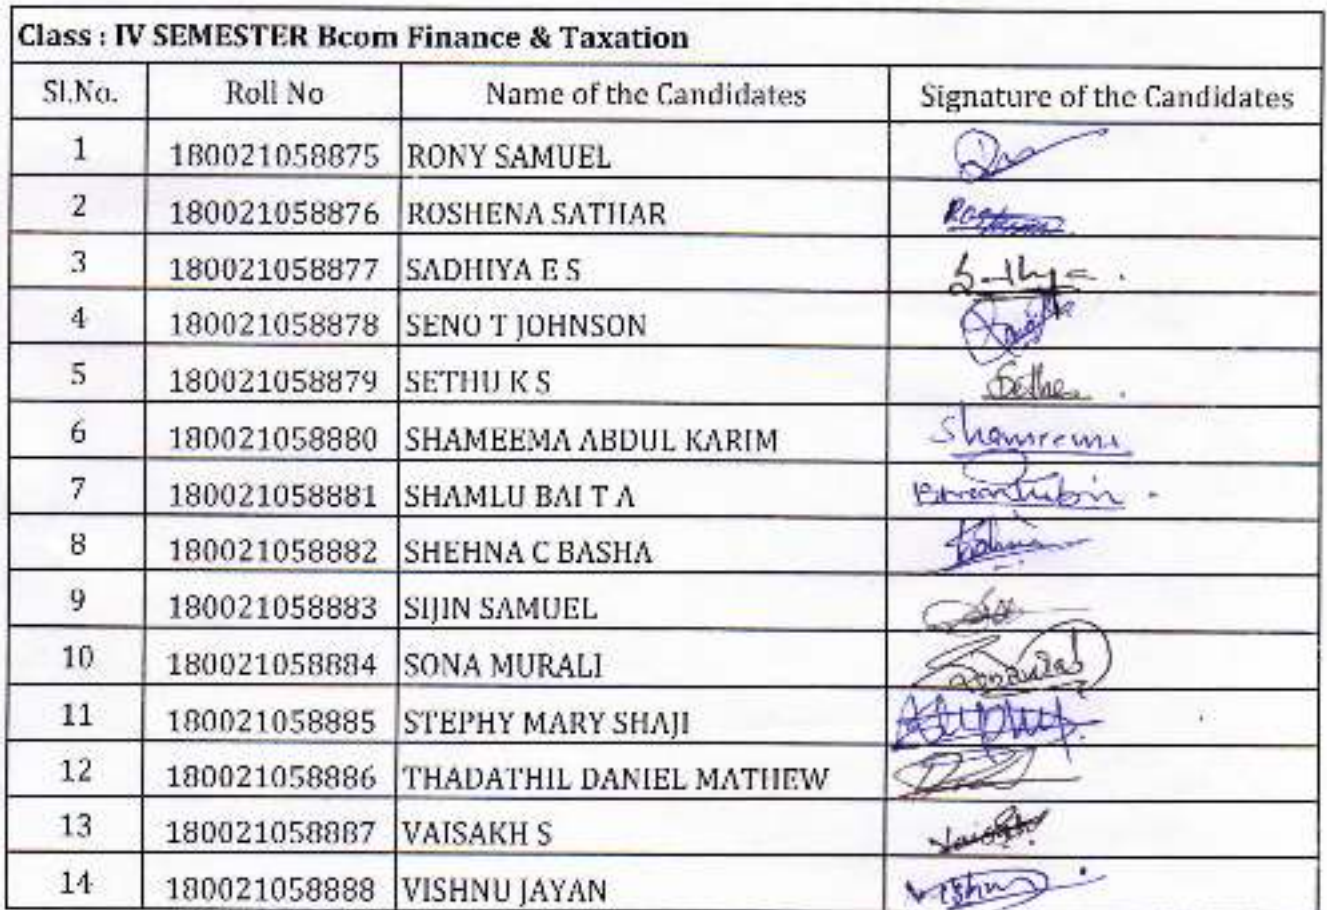 Class : IV SEMESTER Bcom Finance & Taxation
Sl.No. Roll No Name of the Candidates Signature of the Candidates
1 180021058875 RONY SAMUEL
2 180021058876 ROSHENA SATHAR
3 180021058877 SADHIYA E S
4 180021058878 SENO T JOHNSON
5 180021058879 SETHU K S
6 180021058880 SHAMEEMA ABDUL KARIM
7 180021058881 SHAMLU BAI T A
8 180021058882 SHEHNA C BASHA
9 180021058883 SIJIN SAMUEL
10 180021058884 SONA MURALI
11 180021058885 STEPHY MARY SHAJI
12 180021058886 THADATHIL DANIEL MATHEW
13 180021058887 VAISAKH S
14 180021058888 VISHNU JAYAN